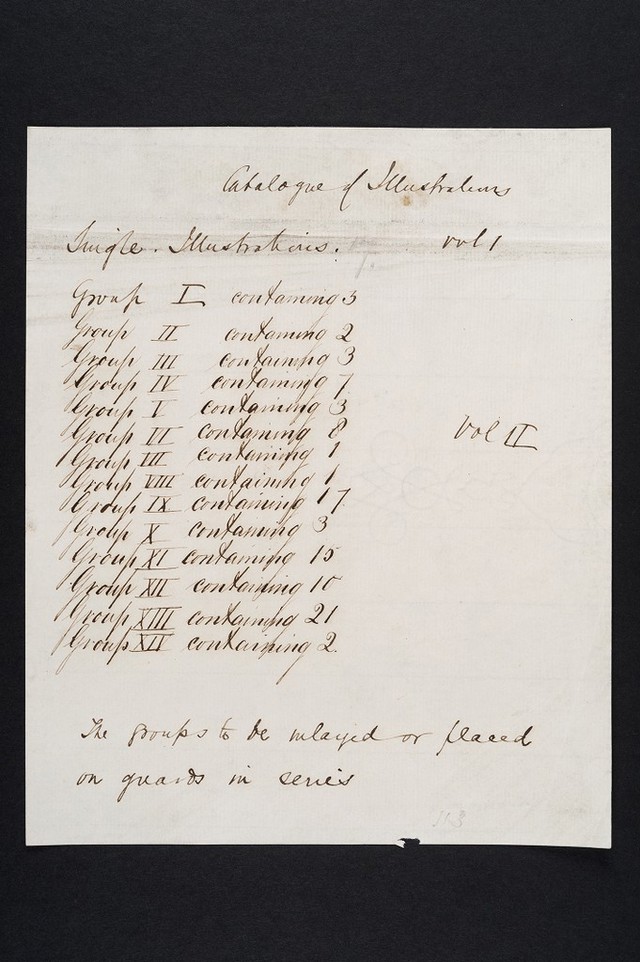 Catalogue of Illustrations
Single. Illustrations. vol 1
Group I containing 3
Group II containing 2
Group III containing 3
Group IV containing 7
Group V containing 3
Group VI containing 8 Vol II
Group VII containing 1
Group VIII containing 1
Group IX containing 17
Group X containing 3
Group XI containing 15
Group XII containing 10
Group XIII containing 21
Group containing 2.
The groups to be inlayed or placed
on guards in series